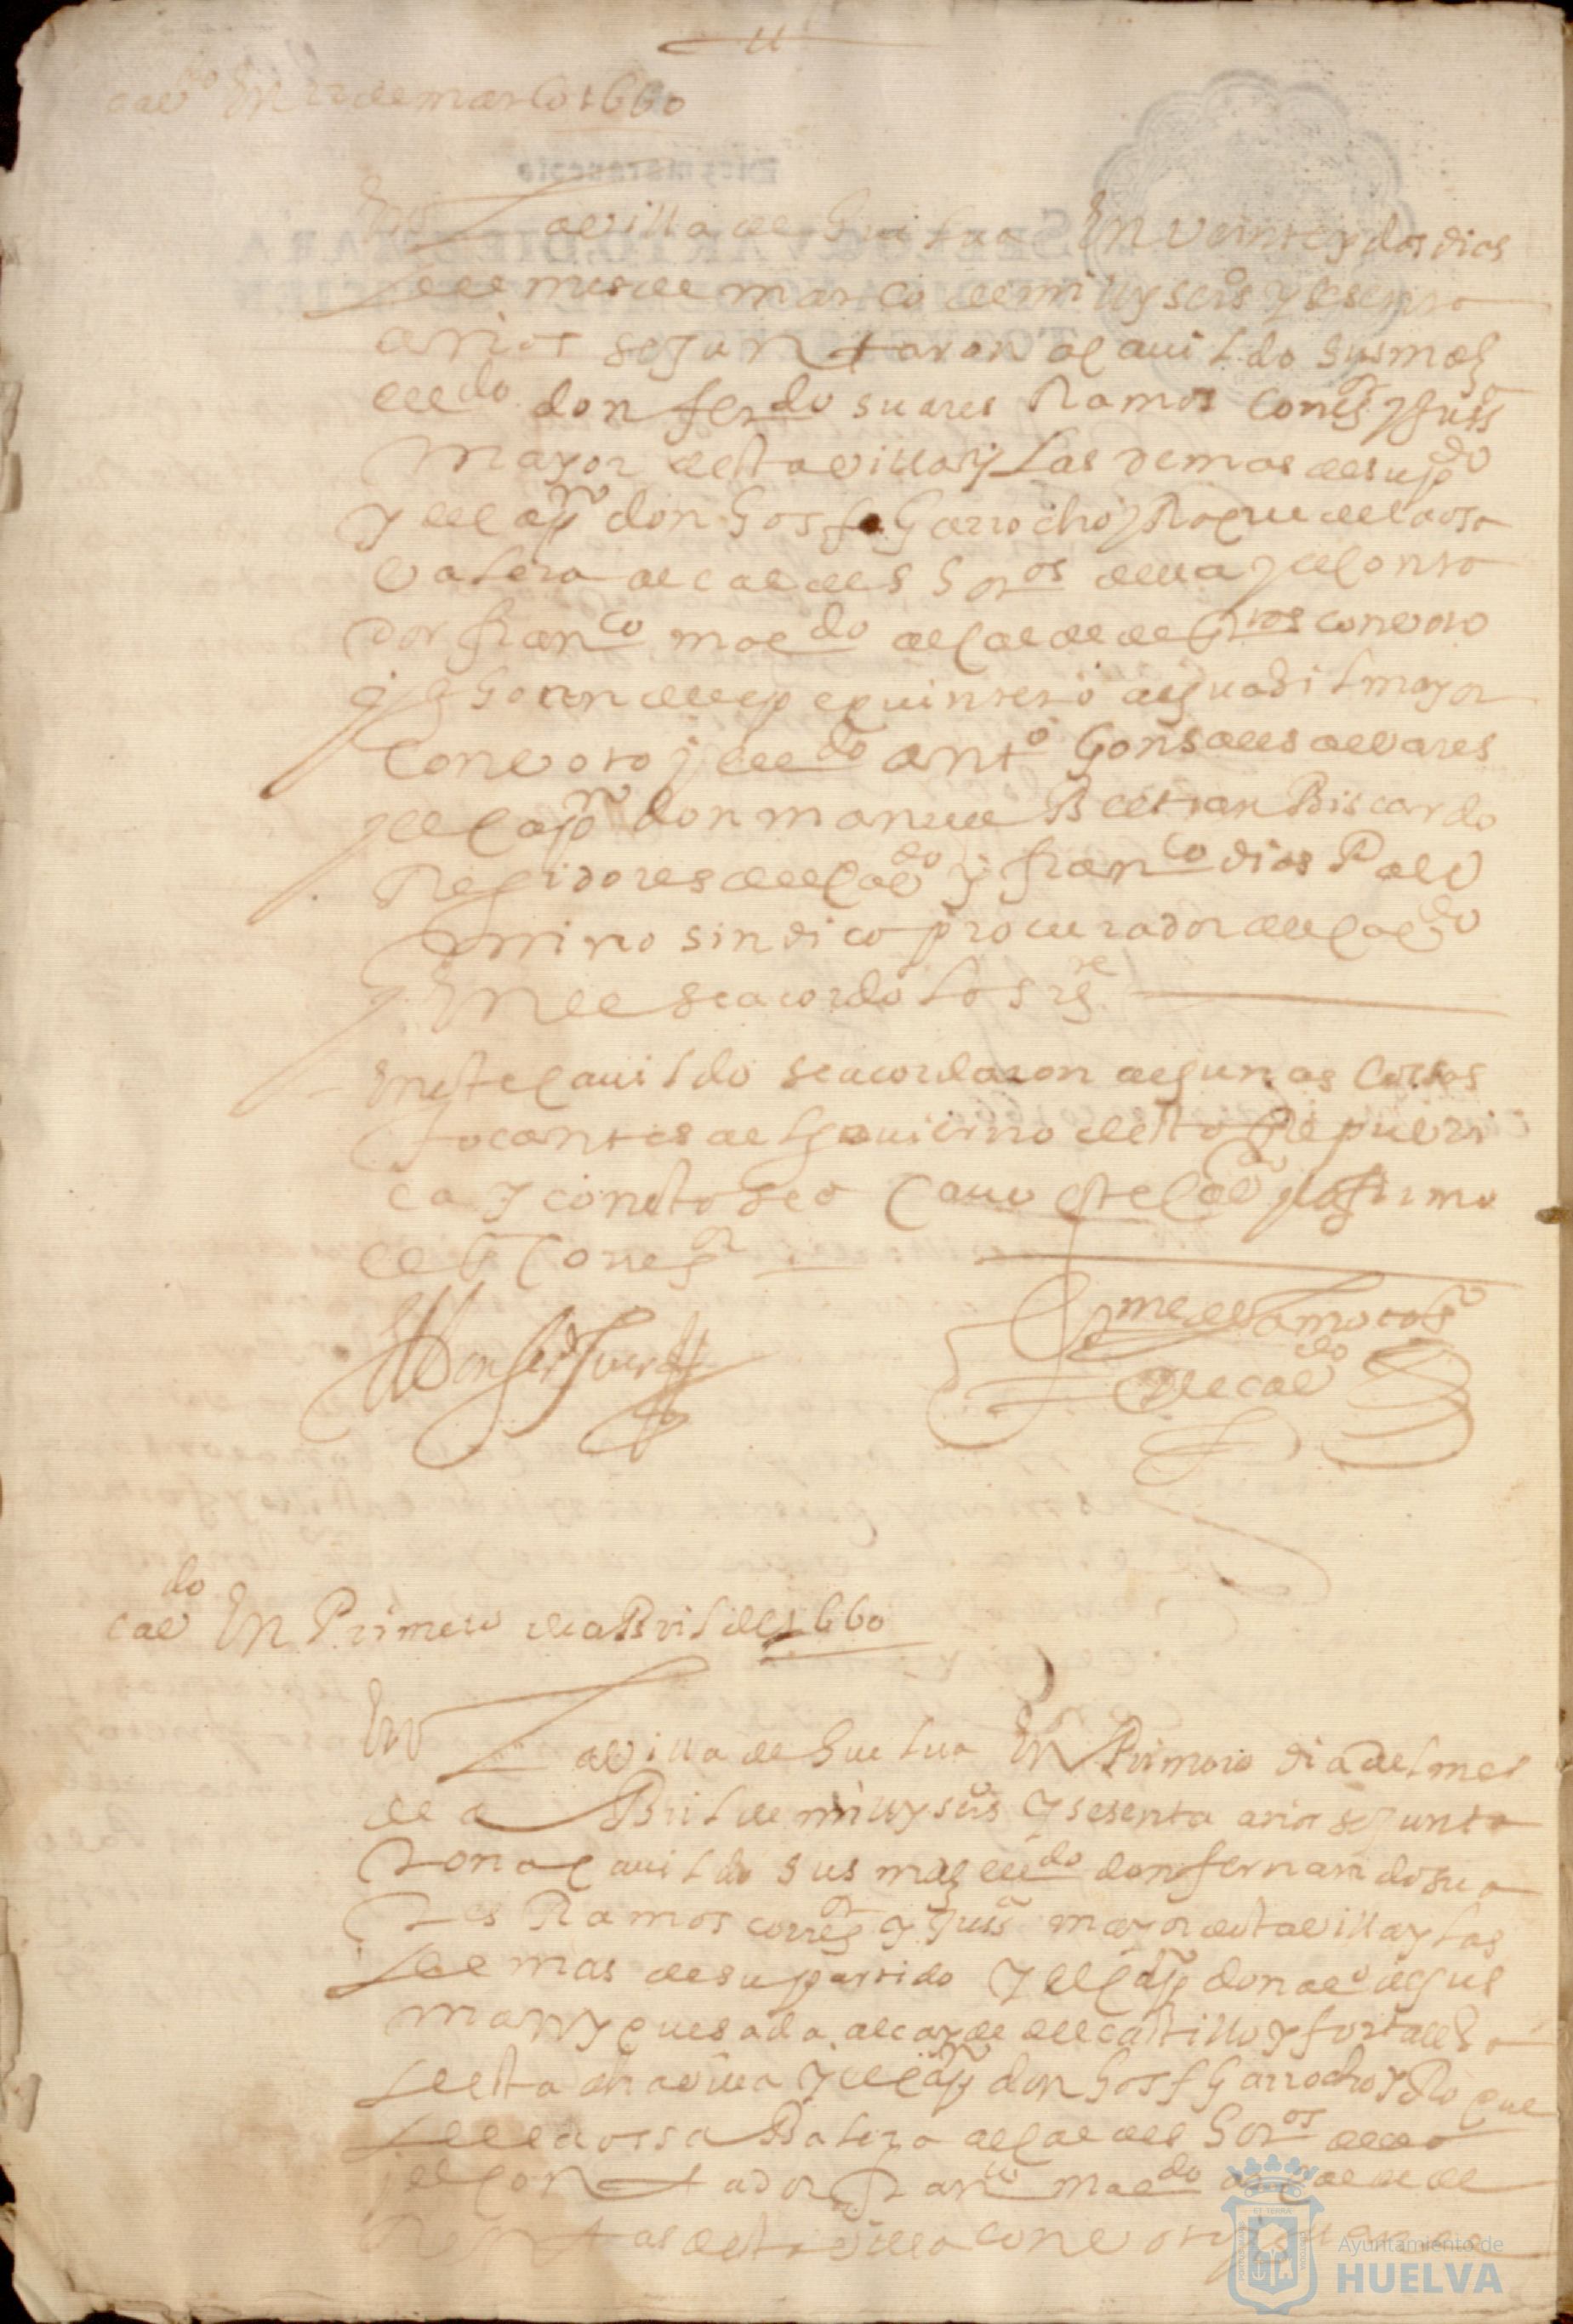 cavdo En 22 de março 1660
En La villa de Guelua En veinte y dos dias
del mes de março de mill y seis y sesenta
años se juntaron a cauildo sus mds
el ldo don ferdo suares Ramos Corregor y Justa
mayor desta villa y las demas de su pdo
y el capn don Josf Garrocho y Roque de la osa
Valera alcaldes hordros della y el conta
dor franco maldo alcalde de con voto
y Joan de lep quintero alguasil mayor
con voto y el ldo anto Gonsales alvares
y el capn don manuel Beltran Biscardo
Regidores del cavdo y franco dias Pal
omino sindico procurador del cavdo
y En el se acordo lo sigte
En este cauildo se acordaron algunas cossas
tocantes al gouierno desta Republi
ca y con esto se acauo este cavdo y lo firmo
el sr Corregor
del cavdo
cavdo En Primero de aBril de 1660
En La villa de Guelua En Primero dia del mes
de aBril de mill y seis y sesenta años se junta
ron a cauildo sus mds el ldo don fernando sua
res Ramos corregor y Justa mayor desta villa y las
demas de su partido y el capn don alo de gus
man y quesada alcayde del castillo y fortalesa
desta dha villa y el capn don Josf Garrocho y Roque
de la ossa Balera alcaldes hordros della
y el contador franco maldo alcalde de
Rentas desta villa con voto y Juan de
Ayuntamiento de
HUELVA